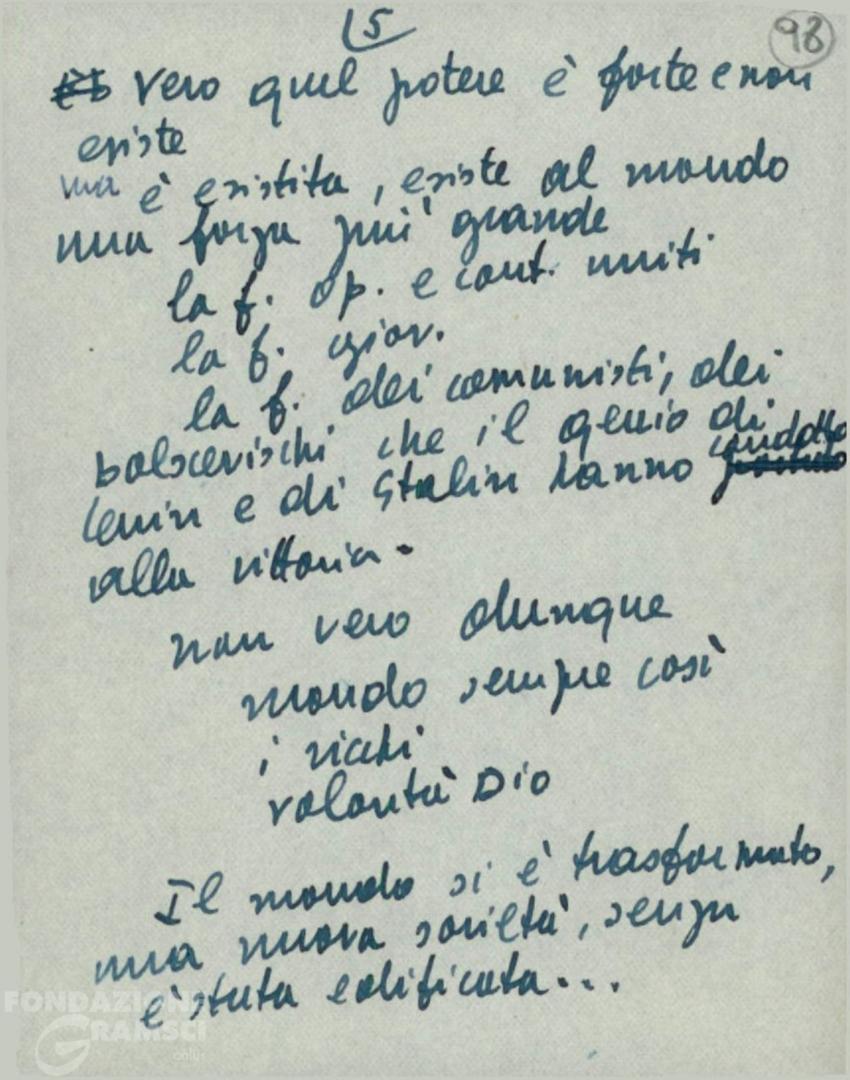 15
98
vero quel potere è forte e non
esiste
ma è esistita, esiste al mondo
una forza più grande
la f. op. e cont. uniti
la f. giov.
la f. dei comunisti, dei
bolscevischi che il genio di
Lenin e di Stalin hanno condotto
alla vittoria.
non vero dunque
mondo sempre così
i ricchi
volontà Dio
Il mondo si è trasformato,
una nuova società, senza
è stata edificata...
FONDAZIONE
GRAMSCI
onlus